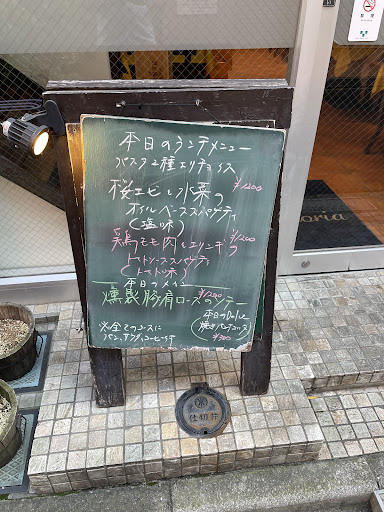 禁煙
本日のランチメニュー
パスタ2種よりチョイス
桜エビと水菜の ¥1200
オイルベーススパゲティ
(塩味)
鶏モモ肉とエリンギ ¥1200
トマトソーススパゲティ
(トマト味)
本日のメイン
燻製豚肩ロースのソテー ¥1200
本日のDolce
焼き
¥300
※全てのコースに
パン、サラダ、コーヒー付
oria
仕切弁